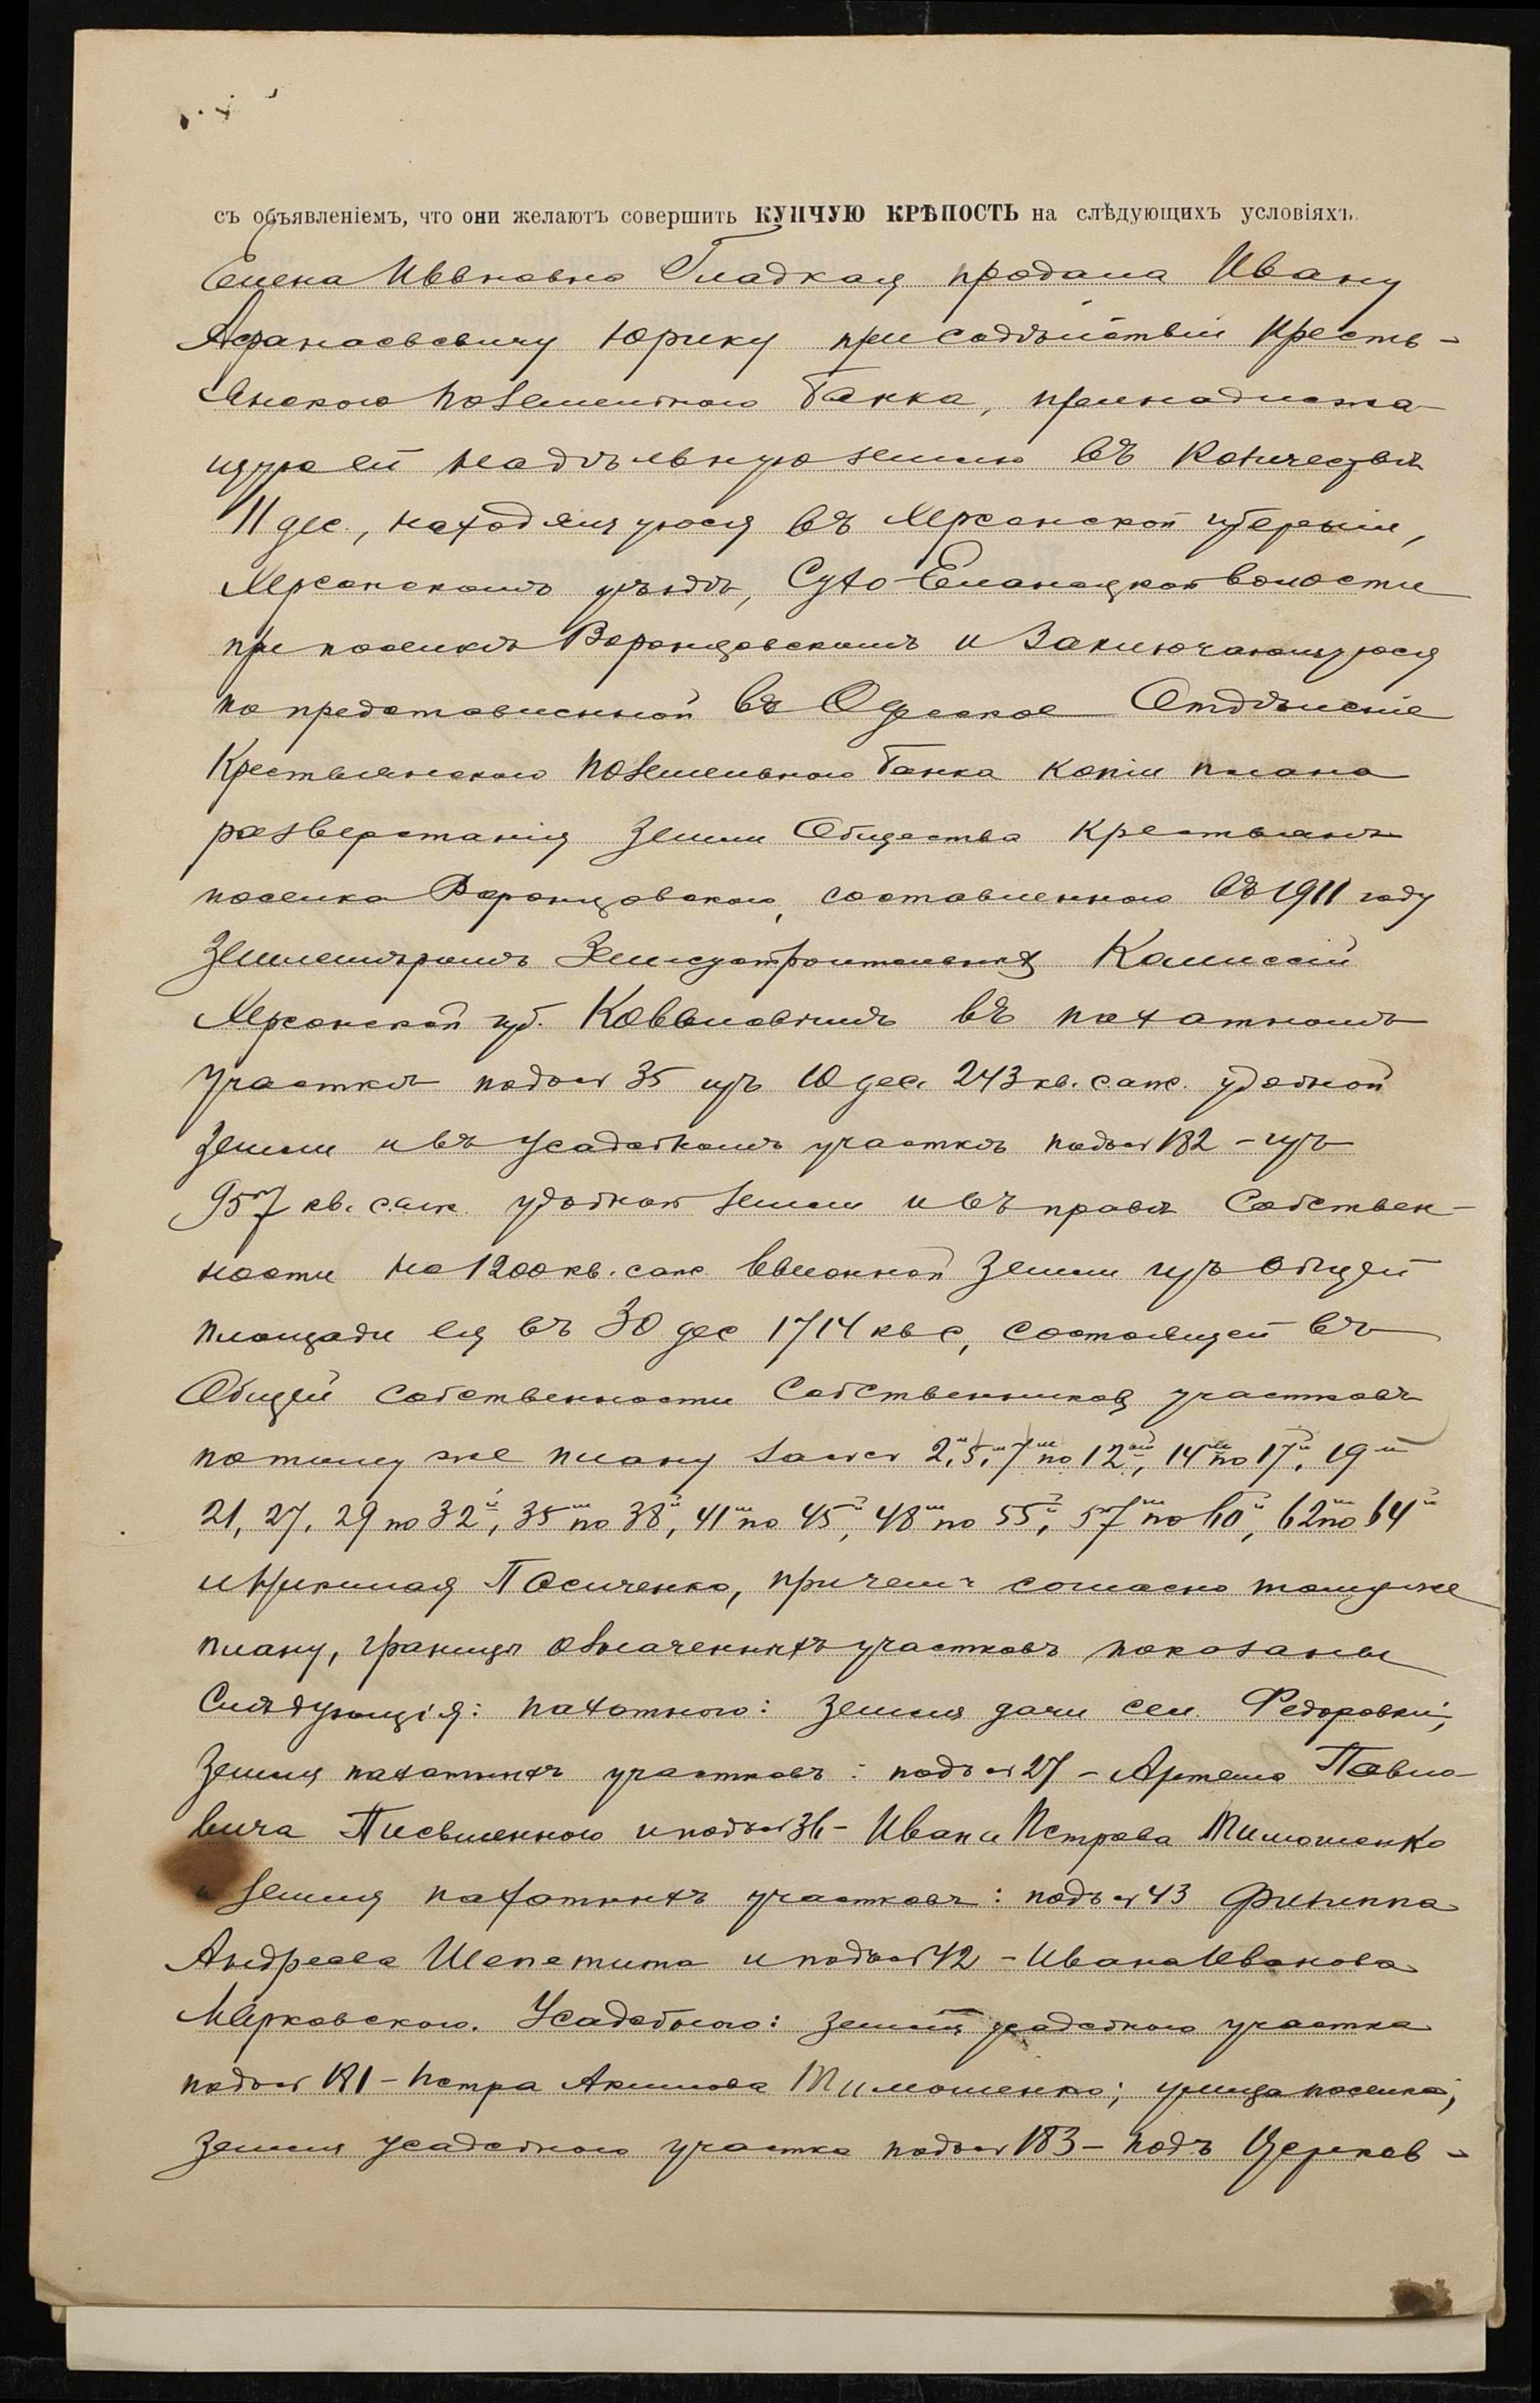 съ объявленіемъ, что они желаютъ совершить КУПЧУЮ КРѢПОСТЬ на слѣдующихъ условіяхъ.
Елена Ивановна Гладкая продала Ивану
Афанасьевичу Юрику при содѣйствіи Кресть-
янскаго Поземельнаго Банка, принадлежа-
щую ей надѣльную землю въ количествѣ
11 дес., находящуюся въ Херсонской губерніи,
Херсонскомъ уѣздѣ, Сухо-Еланецкой волости
при поселкѣ Воронцовскомъ и заключающуюся
по представленной въ Одесское Отдѣленіе
Крестьянскаго Поземельнаго Банка копіи плана
разверстанія земли Общества крестьянъ
поселка Воронцовскаго, составленнаго въ 1911 году
Землемѣромъ Землеустроительныхъ Комиссій
Херсонской губ. въ пахатномъ
участкѣ подъ № 35 изъ 10 дес. 243 кв. саж. удобной
земли и въ усадебномъ участкѣ подъ № 182 - изъ
957 кв. саж. удобной земли и въ правѣ собствен-
ности на 1200 кв. саж. выгонной земли изъ общей
площади ея въ 30 дес 1714 кв с, состоящей въ
общей собственности собственниковъ участковъ
по тому же плану за №№ 2, 5, 7 по 12й, 14 по 17й, 19й
21, 27, 29 по 32й, 35 по 38й, 41 по 45й, 48 по 55й, 57 по 60й, 62 по 64й
и Пасиченко, причемъ согласно тому же
плану, границы означенныхъ участковъ показаны
слѣдующія: пахатного: земля дачи сел. Федоровки;
земля пахатныхъ участковъ: подъ № 27 - Артема Павло-
вича Письменнаго и подъ № 36 - Ивана Петрова Тимошенко
и земля пахатныхъ участковъ: подъ № 43 Филиппа
Андреева Шепетита и подъ № 42 - Ивана Иванова
Марковскаго. Усадебного: земля усадебнаго участка
подъ № 181 - Петра Акимова Тимошенко; улица поселка;
земля усадебнаго участка подъ № 183 - подъ Церков-